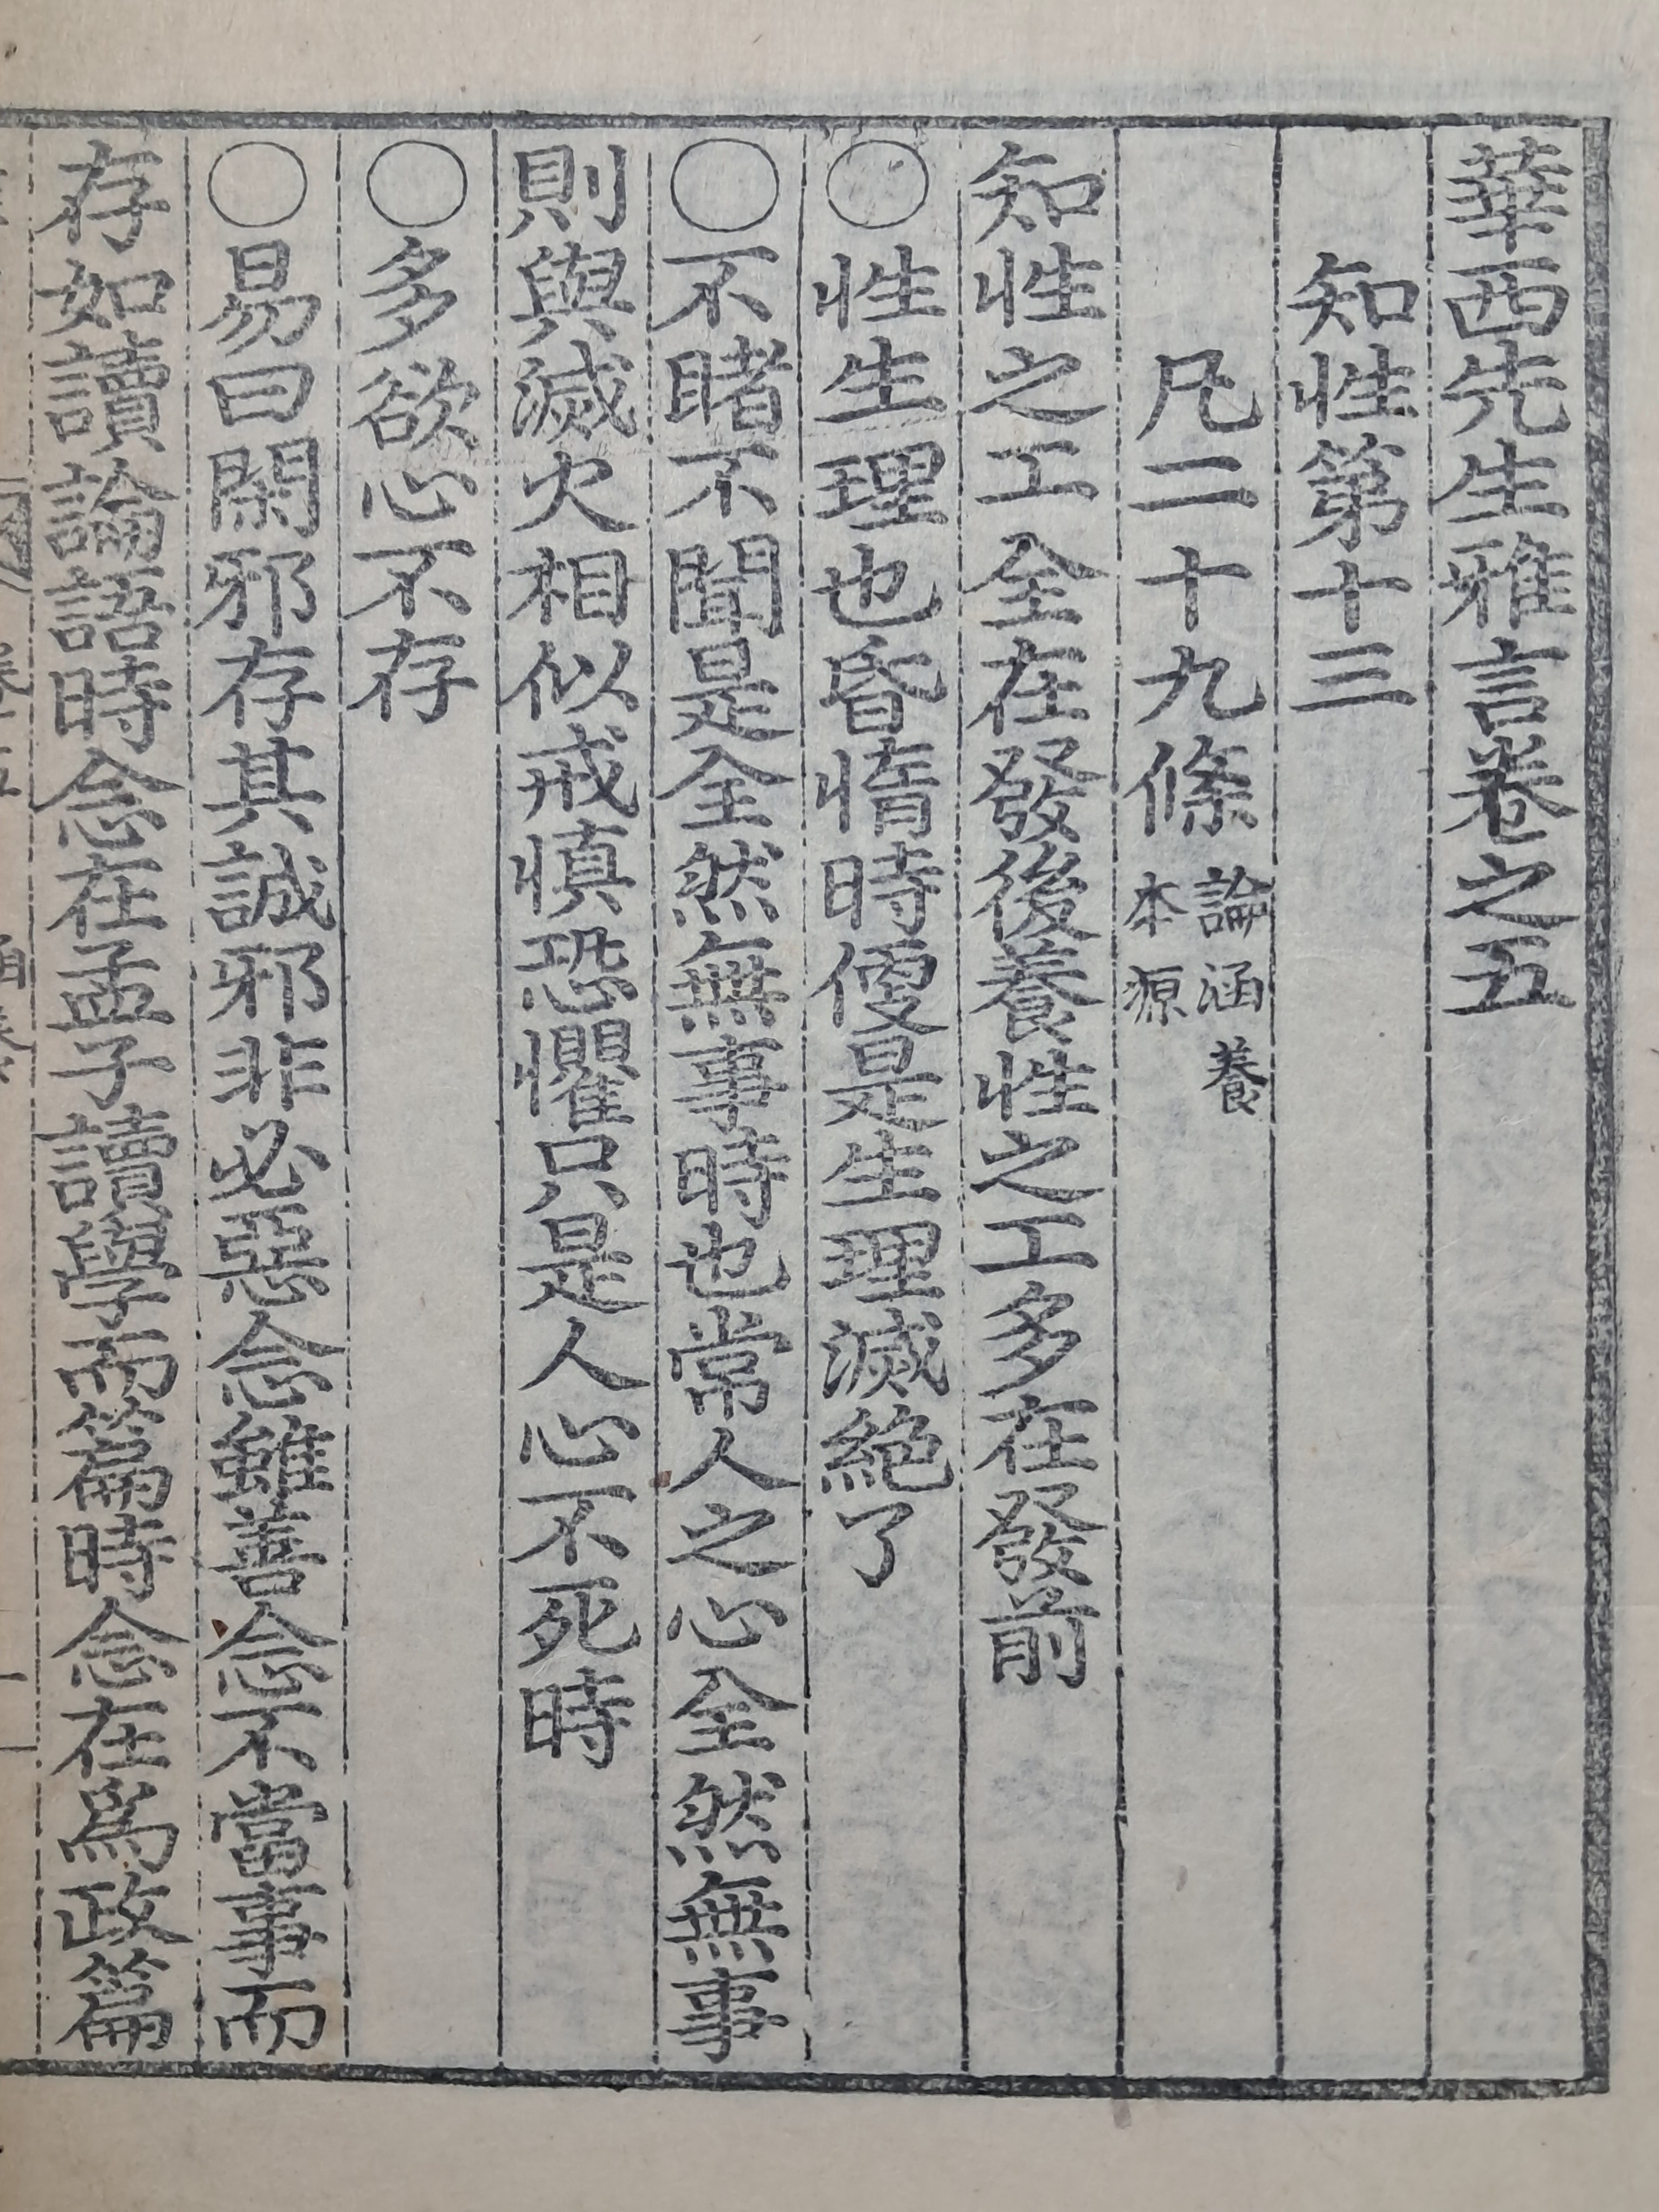 華西先生雅言卷之五
知性第十三
凡二十九條論涵養本源
知性之工全在發後養性之工多在發前
○性生理也昏惰時便是生理滅絶了
○不睹不聞是全然無事時也常人之心全然無事
則與滅火相似戒愼恐懼只是人心不死時
○多欲心不存
○易曰閑邪存其誠邪非必惡念雖善念不當事而
存如讀論語時念在孟子讀學而篇時念在爲政篇